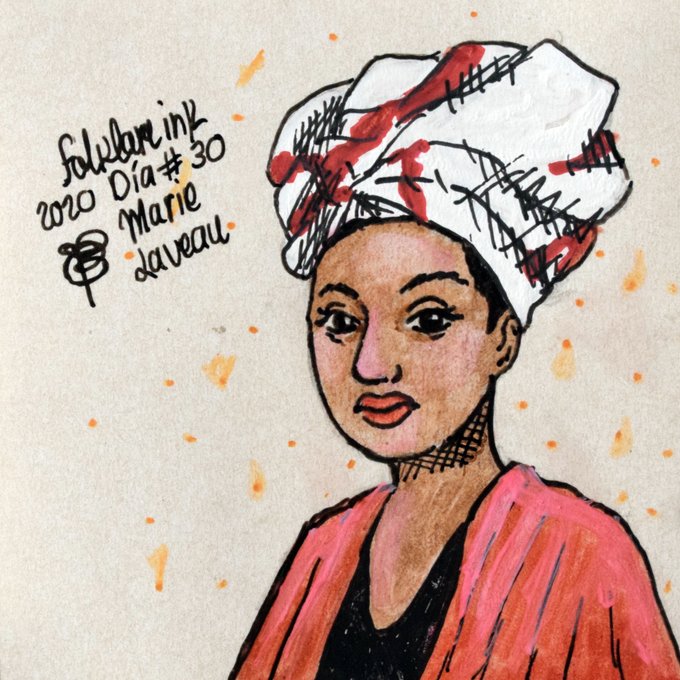 folklore ink
2020 Día # 30
Marie
Laveau